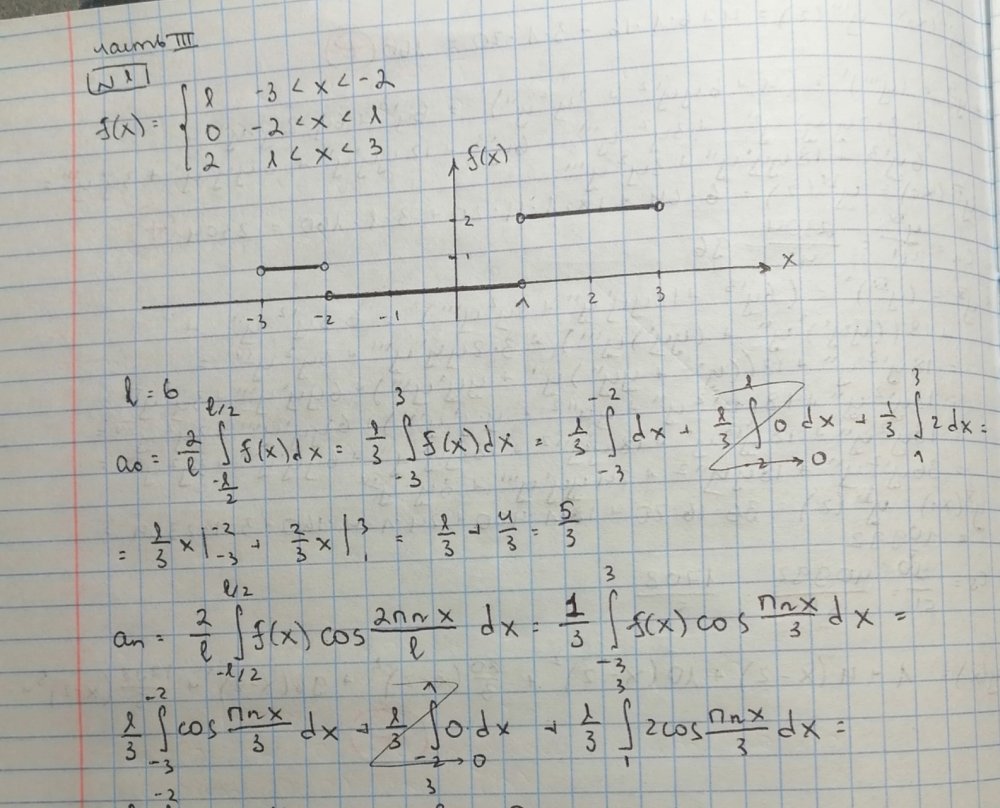 часть III
№1
f(x) = { 1 -3 < x < -2
0 -2 < x < 1
2 1 < x < 3
f(x)
2
1
x
-3 -2 -1 1 2 3
l = 6
a₀ = 2/l ∫_{-l/2}^{l/2} f(x)dx = 1/3 ∫_{-3}^{3} f(x)dx = 1/3 ∫_{-3}^{-2} dx + 1/3 ∫_{-2}^{1} 0 dx → 0 + 1/3 ∫_{1}^{3} 2dx =
= 1/3 x |_{-3}^{-2} + 2/3 x |_{1}^{3} = 1/3 + 4/3 = 5/3
aₙ = 2/l ∫_{-l/2}^{l/2} f(x) cos 2πnx/l dx = 1/3 ∫_{-3}^{3} f(x) cos πnx/3 dx =
1/3 ∫_{-3}^{-2} cos πnx/3 dx + 1/3 ∫_{-2}^{1} 0·dx → 0 + 1/3 ∫_{1}^{3} 2cos πnx/3 dx =
-2 3